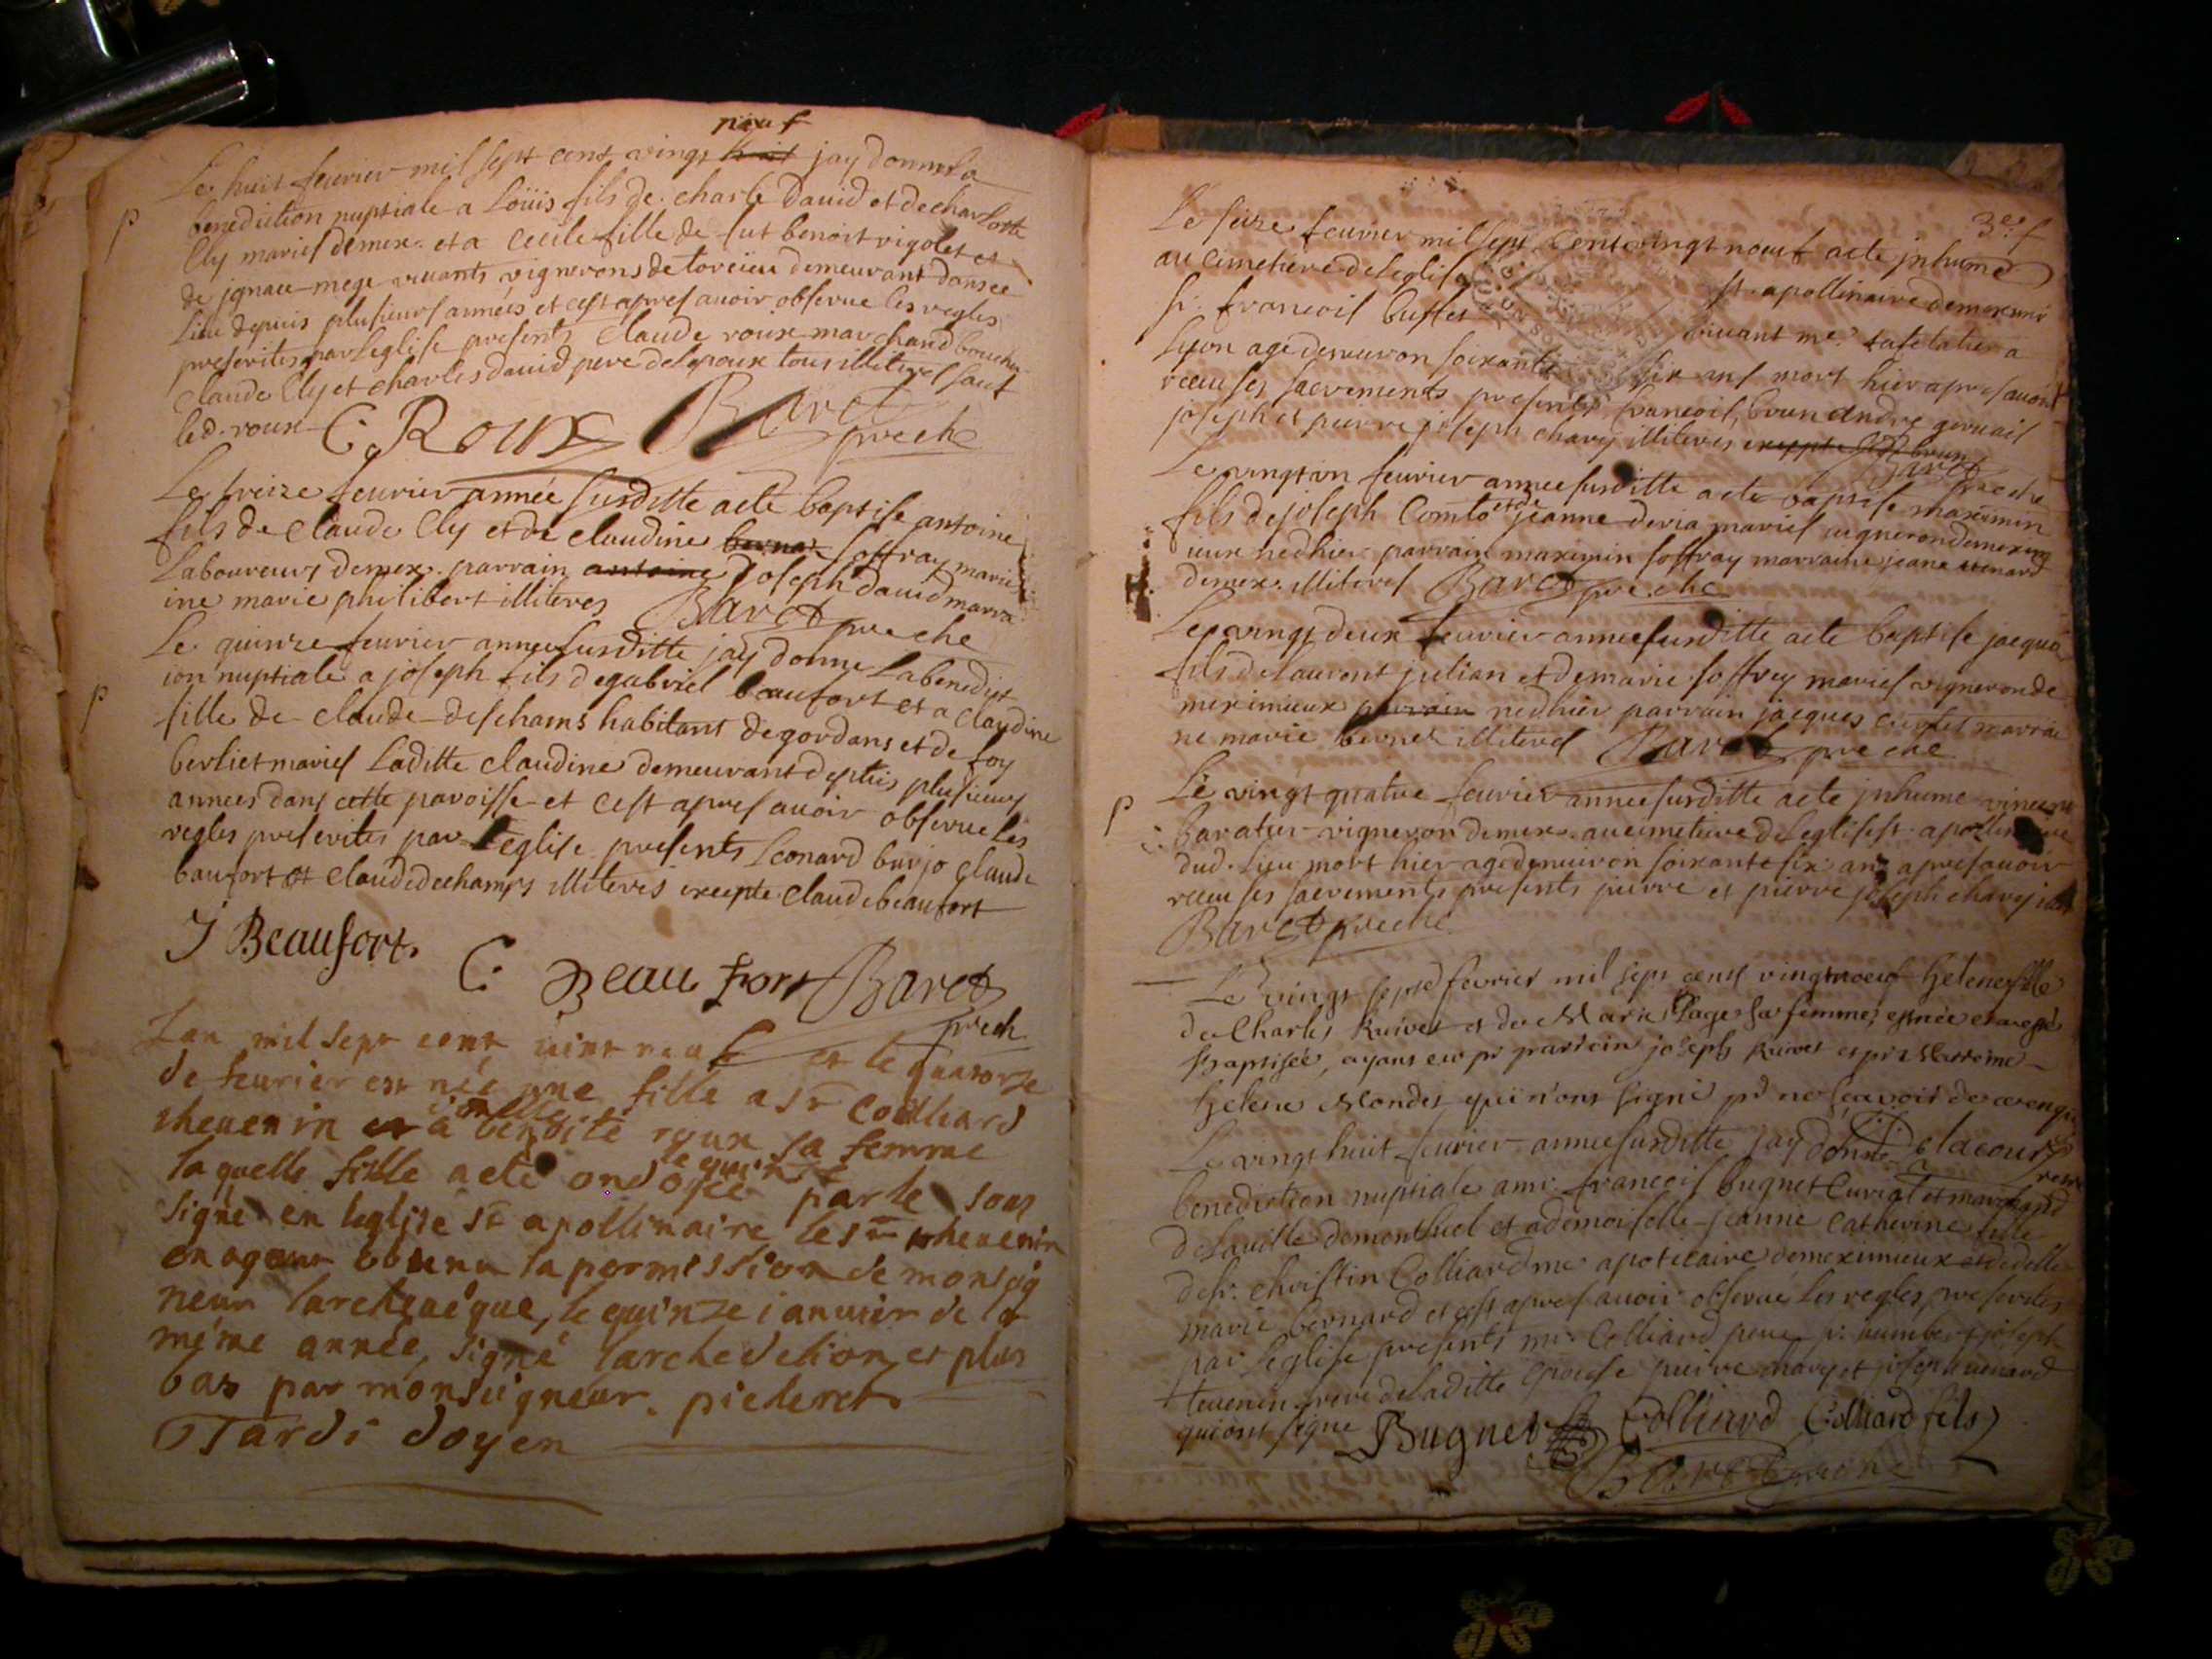 neuf
Le huit feurier mil sept cent vingt huit jay donne la
p
benediction nuptiale a Löüis fils de charle david et de charlotte
Cly maries demex. et a Cecile fille de fut benoit rigolet et
de jgnace mege vivants vignerons de torcieu demeurant dans ce
Lieu depuis plusieurs années et cest apres auoir obserue les regles
prescrites par Leglise presents Claude roux marchand boucher
Claude Cly et charles david pere de lepoux tous illiteres sauf
led. roux C. Roux Baret
preche
Le treize feurier année susditte a eté baptise antoine
fils de Claude Cly et de Claudine bernar soffray maries
Laboureurs demex. parrain antoine joseph david marra
ine marie philibert illiteres Baret preche
Le quinze feurier année susditte jay donne La benedict
ion nuptiale a joseph fils de gabriel beaufort et a claudine
p
fille de claude deschams habitant de gordans et de foy
berliet maries Laditte claudine demeurant depuis plusieurs
années dans cette paroisse et cest apres auoir obserue les
regles prescrites par Leglise presents Leonard burjo claude
baufort et claude dechamps illiteres excepte claude beaufort
J Beaufort. C. Beau fort Baret
prech
Lan mil sept cent vint neuf et le quatorze
de feurier est née une fille a sr Colliard
theuenin et a benoite roux sa femme
le quinze
laquelle fille a eté ondoiée par le sous
signé en leglise st apollinaire le sr theuenin
en ayant obtenu la permission de monseig
neur larcheuéque, le quinze januier de la
méme année, signé larche de lion, et plus
bas par monseigneur. picheret
Tardi doyen
3e f
Le seize feurier mil sept cent vingt neuf a ete jnhumé
au cimetiere de leglise st. apollinaire demeximi
sr. francois buffet viuant me. tafetatier a
Lyon age denuiron soixante six ans mort hier apres auoir
receu ses sacrements presents francois brun andre geruais
joseph et pierre joseph chavy illiteres excepte led brun
Baret preche
Le vingt un feurier année susditte a ete baptise maximin
fils de joseph Comto et de jeanne deria maries vigneron demexim
ieux ne dhier parrain maximin soffray marraine jeane
demex. illiteres Baret preche
Le vingt deux feurier année susditte a eté baptise jacque
fils de laurent julian et de marie soffrey maries vigneron de
meximieux parrain ne dhier parrain jacques marrai
ne marie bernet illiteres Baret preche
p
Le vingt quatre feurier année susditte a eté jnhume vincent
baratier vigneron demex. au cimetiere de leglise st. apollinaire
dud. Lieu mort hier age denuiron soixante six ans apres auoir
receu ses sacrements presents pierre et pierre joseph chavy
Baret preche
Le vingt sept fevrier mil sept cent vingtneuf helene fille
de Charles Ruivet et de Marie Page sa femme, est née et a eté
Baptisée, ayans eu pr parrein joseph Ruivet et pr Marreine
helene Mondet qui n'ont signé pr ne sçavoir de ce enquis
Delacour
Le vingt huit feurier année susditte jay donné la
benediction nuptiale a mr. francois bugnet Curial et marchand
de la uille de montluel et a demoiselle jeanne Catherine fille
de sr. christin Colliard me apoticaire demeximieux et de delle
marie bernard et cest apres auoir obserué Les regles prescrites
par Leglise presents mr. Colliard pere sr. humbert joseph
teuenin frere de laditte epouse pierre chavy et joseph
qui ont signe Bugnet Colliard Colliard fils
Baret